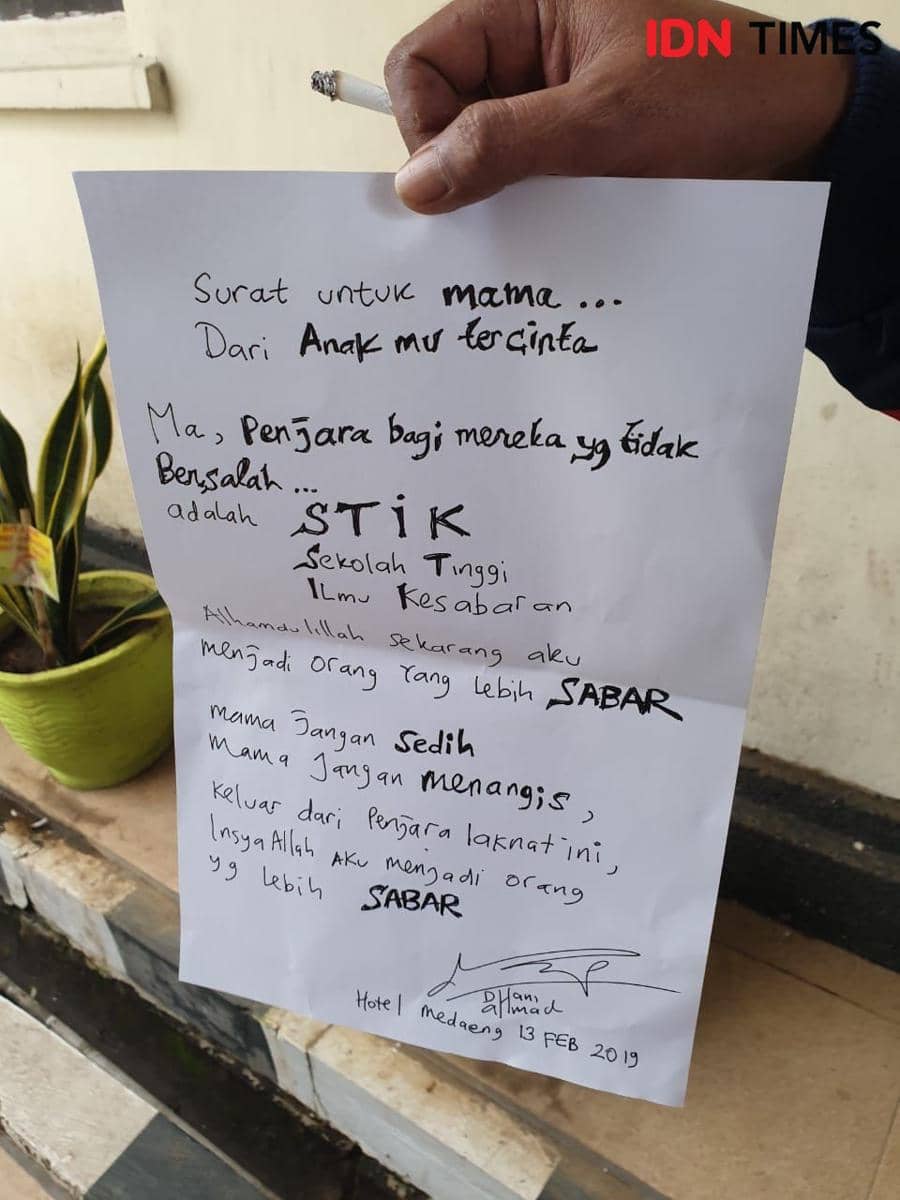 IDN TIMES
Surat untuk mama ...
Dari Anak mu tercinta
Ma, Penjara bagi mereka yg tidak
Bersalah ...
adalah STIK
Sekolah Tinggi
ILmu Kesabaran
Alhamdulillah sekarang aku
menjadi orang Yang Lebih SABAR
mama Jangan Sedih
Mama Jangan menangis,
Keluar dari Penjara laknat ini,
InsyaAllah AKu menjadi orang
yg Lebih SABAR
DHani
aHmad
Hotel medaeng 13 FEB 2019